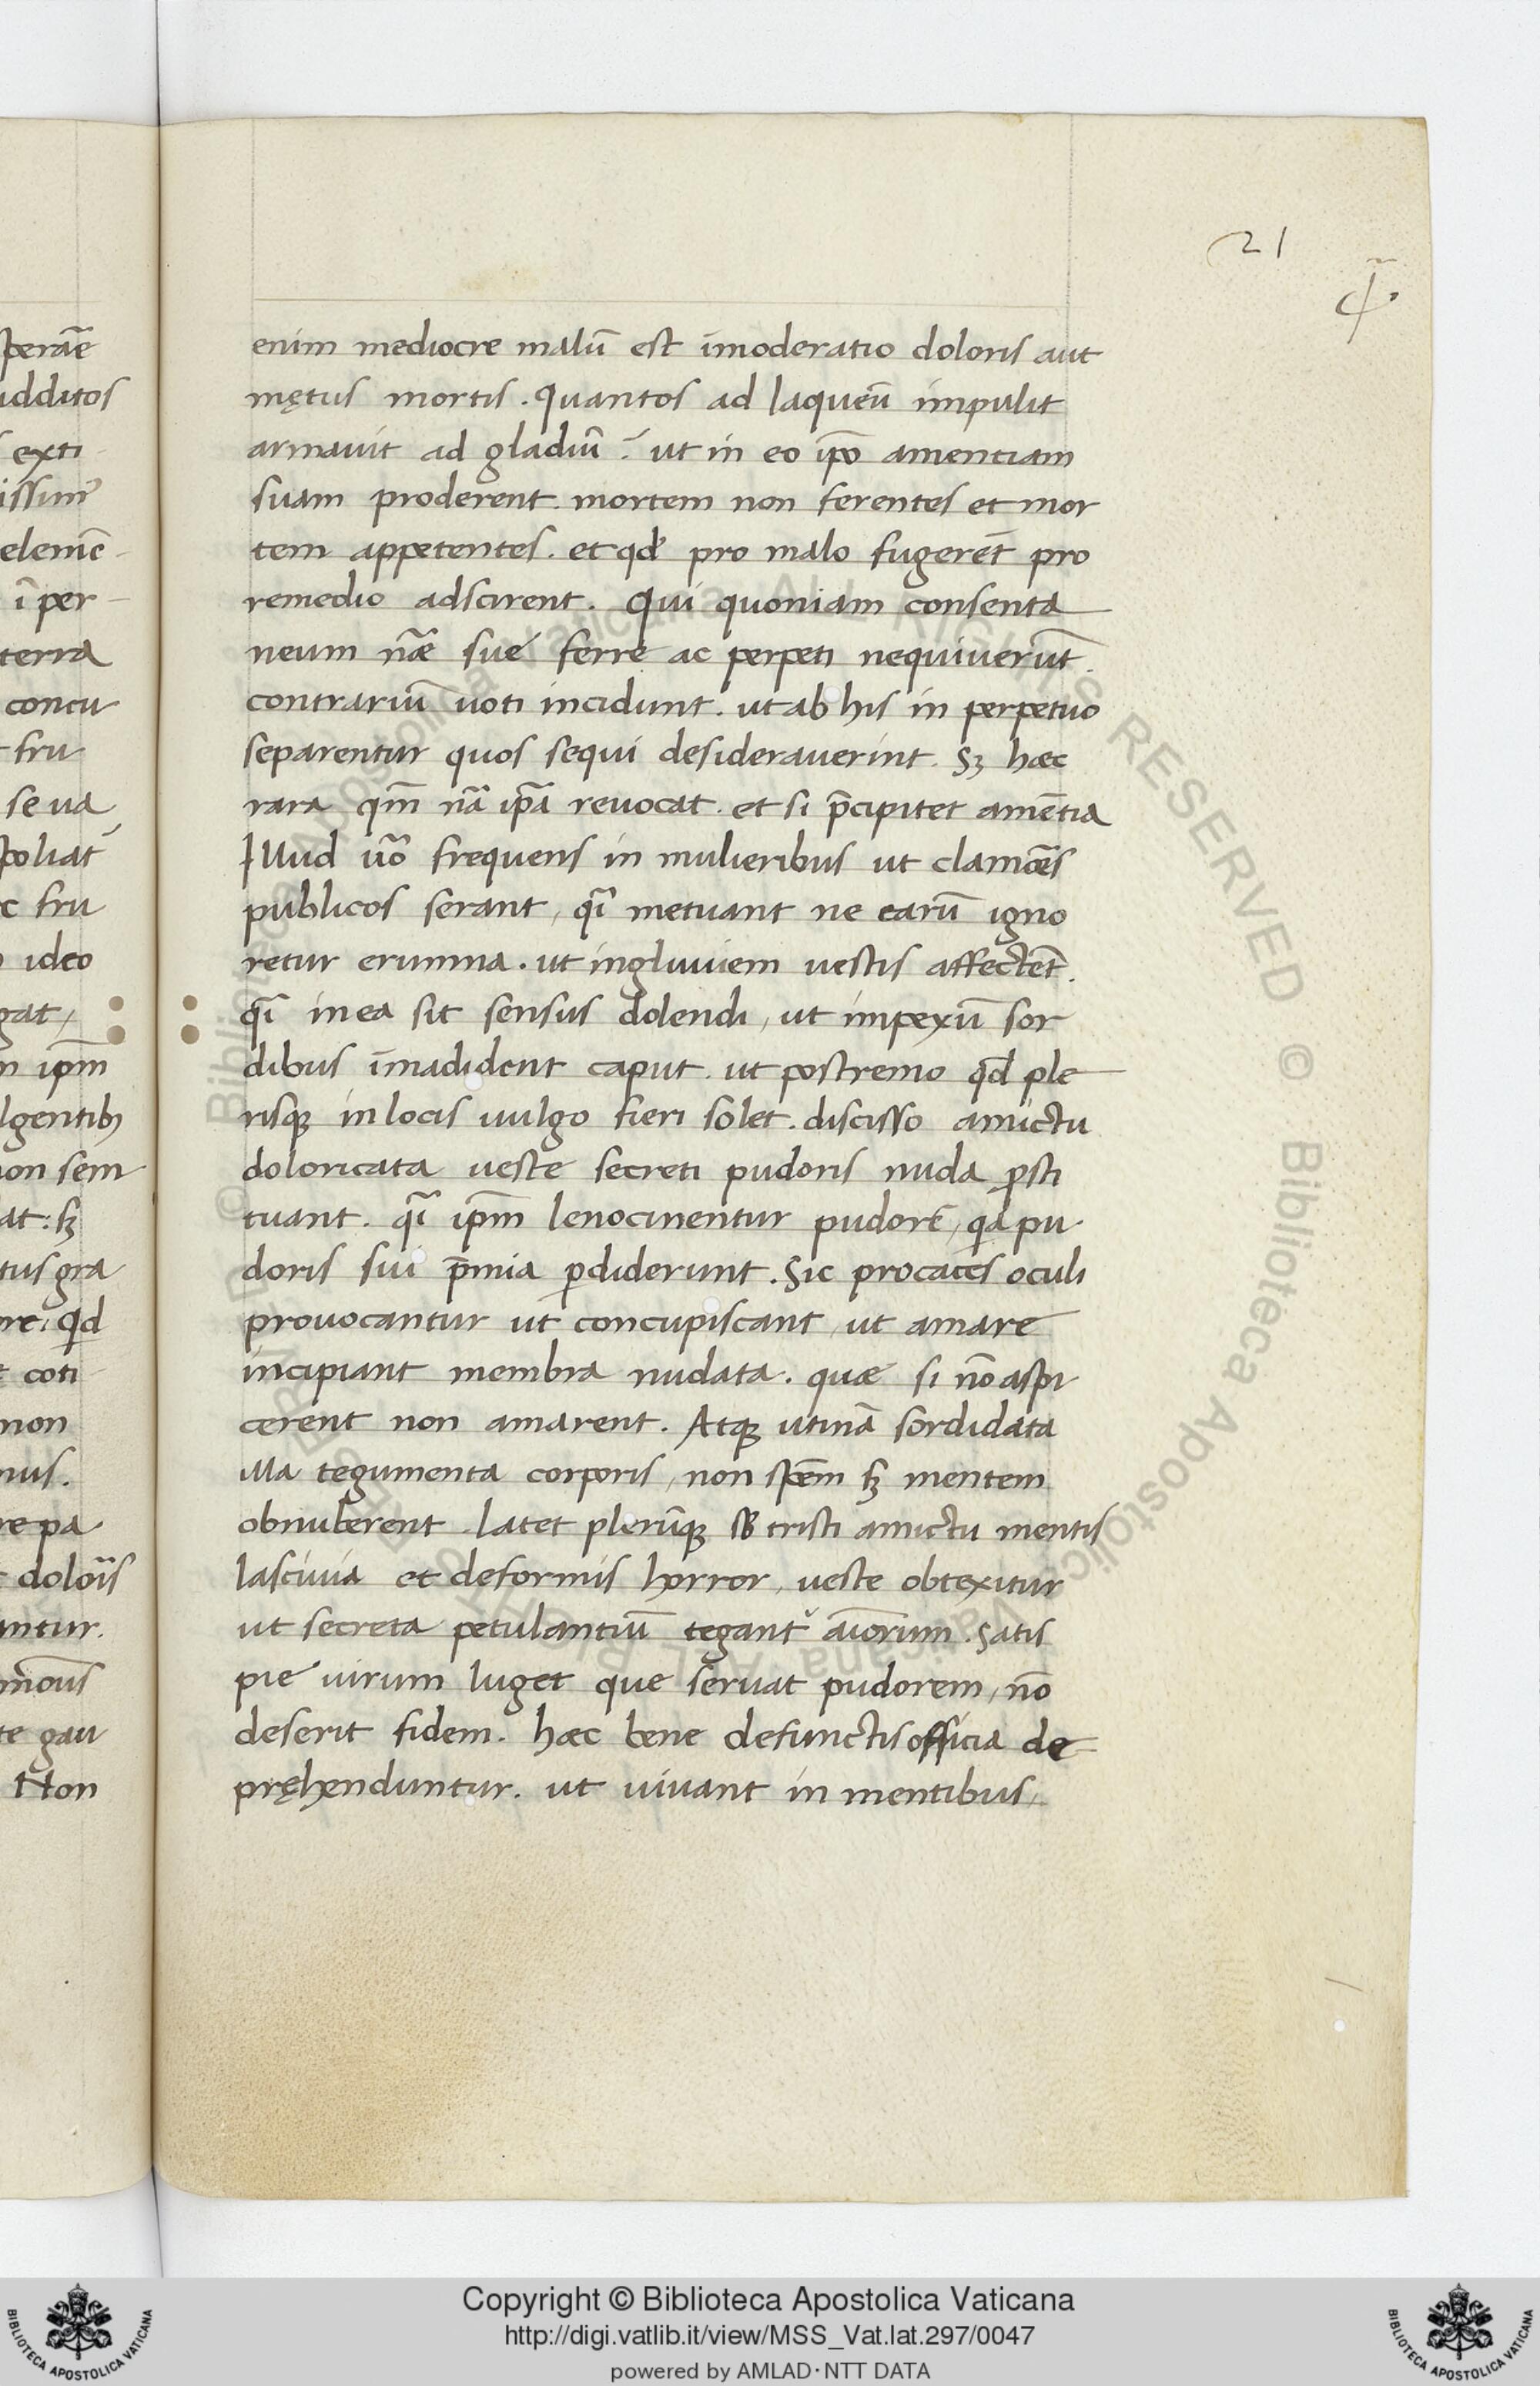 21
enim mediocre malū est īmoderatio doloris aut
mętus mortis . Quantos ad laqueū impulit
armauit ad gladiū : ut in eo ip̄o amentiam
suam proderent . mortem non ferentes et mor
tem appetentes . et qđ pro malo fugerēt pro
remedio adscirent . Qui quoniam consenta
neum nāe sue ferre ac perpeti nequiuerūt .
contrariū uoti incidunt . ut ab his in perpetuo
separentur quos sequi desiderauerint . Sꝫ hæc
rara qm̄ nā ip̄a reuocat . et si p̄cipitet amētia
Illud u̅o frequens in mulieribus ut clamōes
publicos serant , q̄i metuant ne earū igno
retur erumna . ut ingluuiem uestis affectēt .
q̄i in ea sit sensus dolendi , ut impexū sor
dibus īmadident caput . ut postremo qd̄ ple
risqꝫ in locis uulgo fieri solet . discisso amictu
doloricata ueste secreti pudoris nuda ꝓsti
tuant . q̄i ip̄m lenocinentur pudorē , qa pu
doris sui p̄mia ꝑdiderunt . Sic procaces oculi
prouocantur ut concupiscant , ut amare
incipiant membra nudata . quæ si nō aspi
cerent non amarent . Atqꝫ utinā sordidata
illa tegumenta corporis , non spēm sꝫ mentem
obnuberent . latet plerūqꝫ sƀ tristi amictu mentis
lasciuia et deformis horror , ueste obtexitur
ut secreta petulantiū tegant᷑ aīorum . Satis
pie uirum luget que seruat pudorem , nō
deserit fidem . hæc bene defunctis officia de
pręhenduntur . ut uiuant in mentibus ,
Copyright © Biblioteca Apostolica Vaticana
http://digi.vatlib.it/view/MSS_Vat.lat.297/0047
powered by AMLAD·NTT DATA